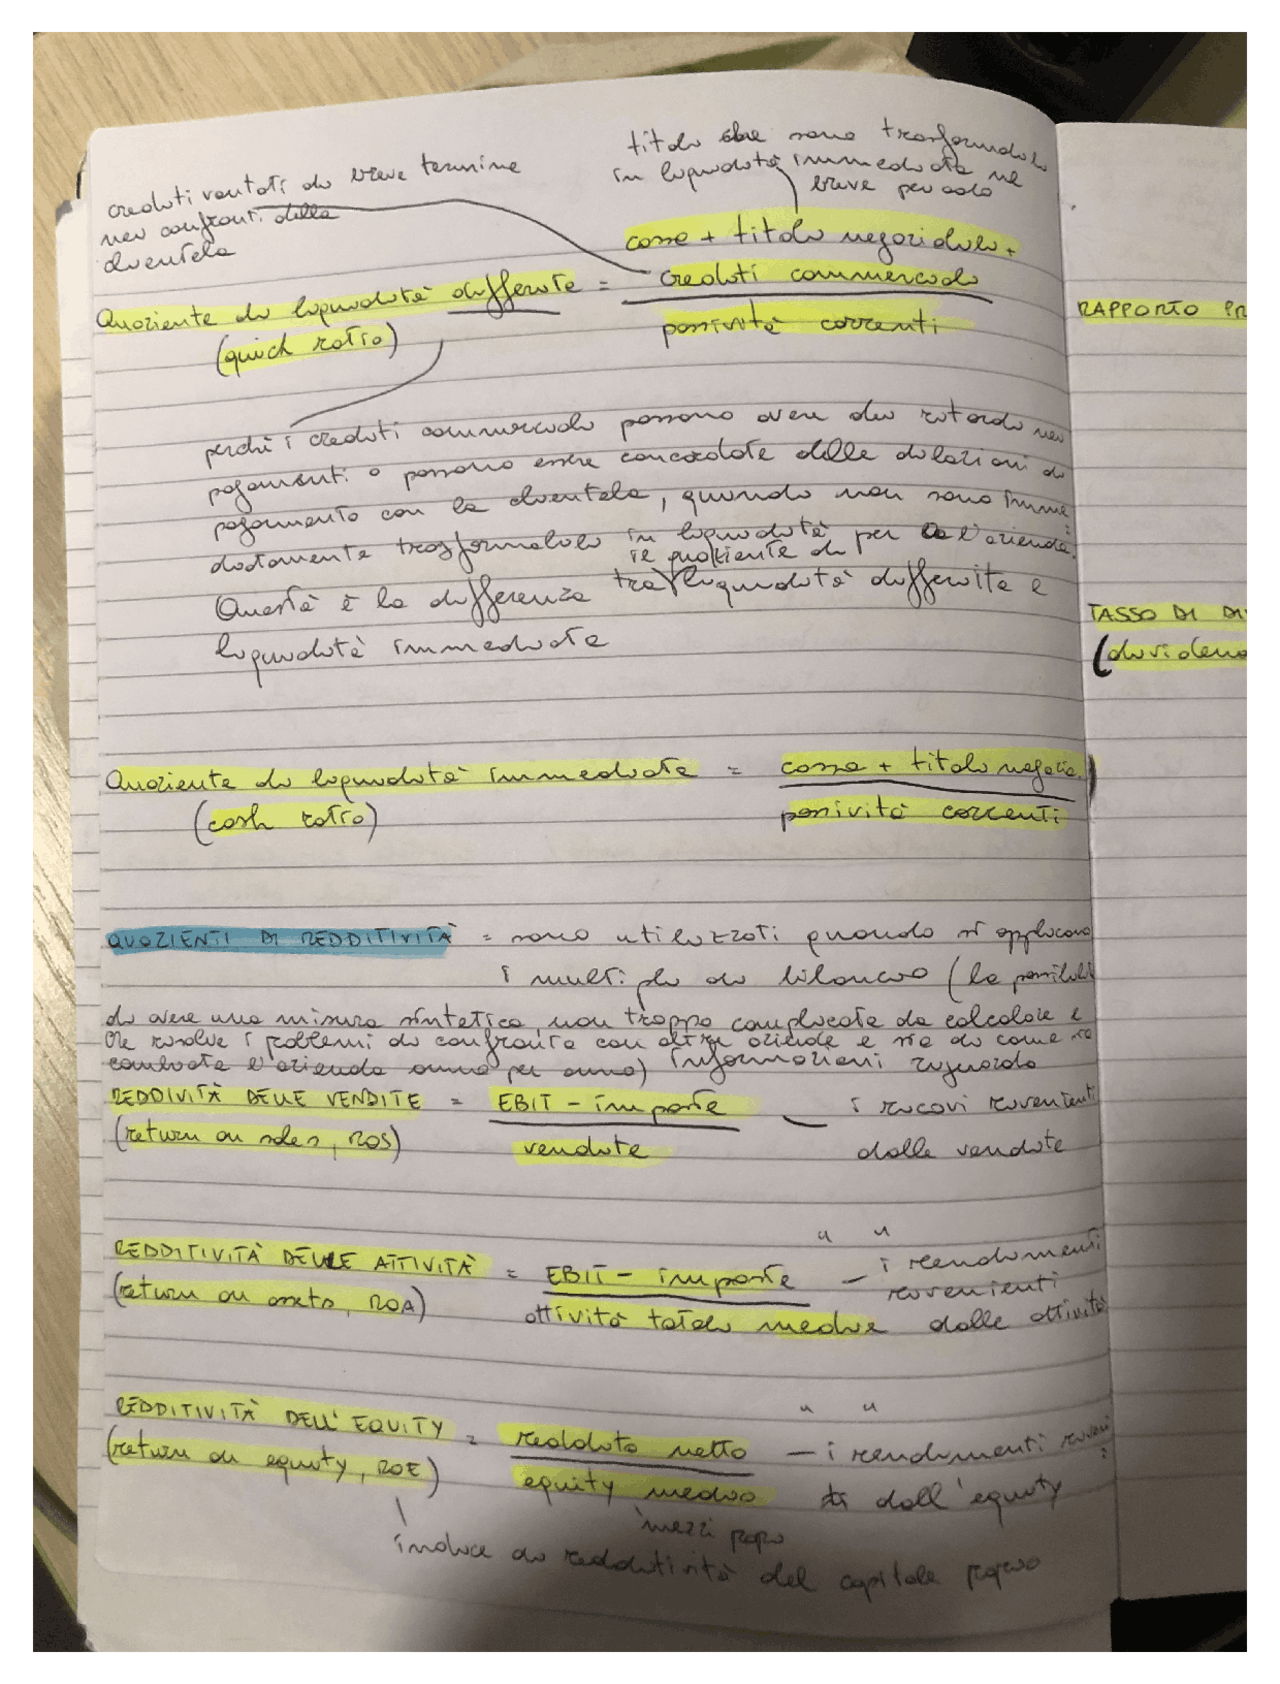 titoli che sono trasformabili
in liquidità immediata nel
breve periodo
crediti vantati di breve termine
nei confronti della
clientela
cassa + titoli negoziabili +
crediti commerciali
Quoziente di liquidità differita =
passività correnti
(quick ratio)
perchè i crediti commerciali possono avere dei ritardi nei
pagamenti o possono essere concordate delle dilazioni di
pagamento con la clientela, quindi non sono imme
diatamente trasformabili in liquidità per l'azienda.
il quoziente di
Questa è la differenza tra liquidità differita e
liquidità immediata
Quoziente di liquidità immediata = cassa + titoli negozia.
(cash ratio) passività correnti
QUOZIENTI DI REDDITIVITÀ = sono utilizzati quando si applicano
i multipli di bilancio (la possibili
di avere una misura sintetica, non troppo complicata da calcolare e
che risolve i problemi di confronto con altre aziende e sia di come si
comporta l'azienda anno per anno) informazioni riguardo
REDDIVITÀ DELLE VENDITE = EBIT - imposte — i ricavi rivenienti
(return on sales, ROS) vendite dalle vendite
" "
REDDITIVITÀ DELLE ATTIVITÀ = EBIT - imposte — i rendimenti
rivenienti
(return on assets, ROA) attività totali medie dalle attività
" "
REDDITIVITÀ DELL'EQUITY = reddito netto — i rendimenti riveni
(return on equity, ROE) equity medio ti dall'equity
mezzi propri
indice di redditività del capitale proprio
RAPPORTO PR
TASSO DI DI
(dividend